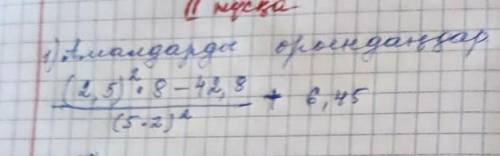 II нұсқа
1) Амалдарды орындаңдар
(2,5)²·8-42,8
(5-2)² + 6,45